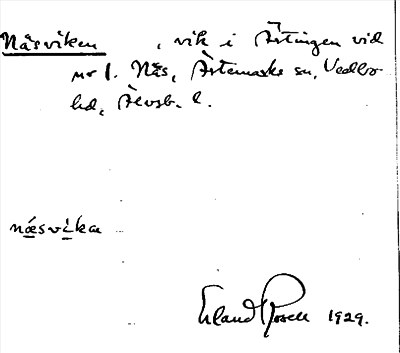 Näsviken , vik i Ärtingen vid
nr 1. Näs, Ärtemarks sn, Vedbo
hd, Älvsb. l.
næsvika
Erland Rosell 1929.